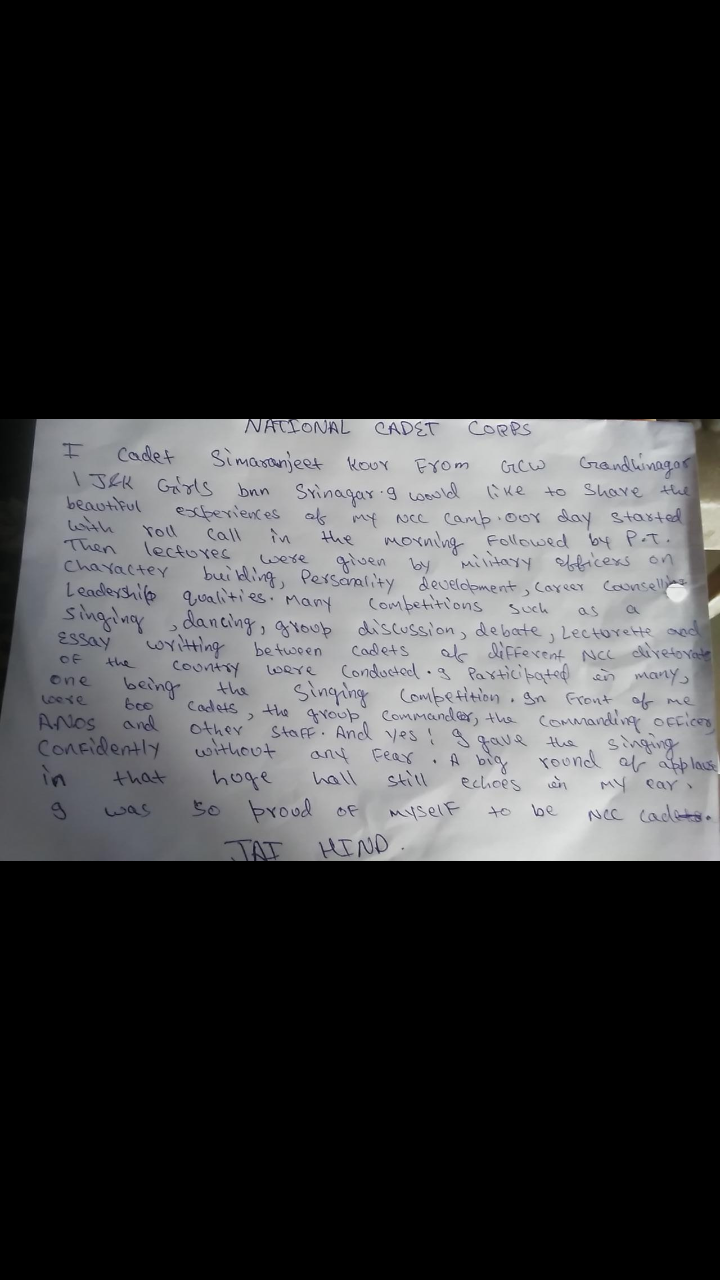 NATIONAL CADET CORPS
I Cadet Simaranjeet Kour From GCW Gandhinagar
1 J&K Girls bnn Srinagar. I would like to Share the
beautiful experiences of My NCC Camp. Our day Started
with roll call in the morning Followed by P.T.
Then lectures were given by military officers on
Character building, Personality development, Career Counselling
Leadership qualities. Many Competitions Such as a
Singing, dancing, group discussion, debate, Lecturette and
Essay writting between Cadets of different NCC diretorate
of the country were Conducted. I Participated in many,
one being the Singing Competition. In Front of me
were 600 Cadets, the group Commander, the Commanding officer,
ANOs and other Staff. And yes! I gave the Singing
Confidently without any Fear. A big round of applause
in that huge hall still echoes in My ear.
I was so proud of Myself to be NCC Cadets.
JAI HIND.